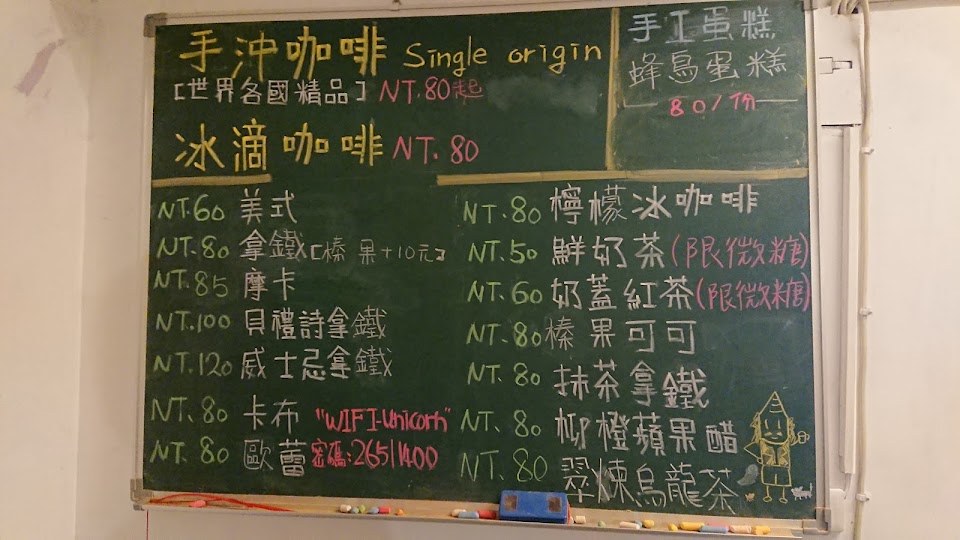 手沖咖啡 Single origin
[世界各國精品] NT.80起
冰滴咖啡 NT.80
手工蛋糕
蜂鳥蛋糕
80/份
NT.60 美式
NT.80 拿鐵[榛果+10元]
NT.85 摩卡
NT.100 貝禮詩拿鐵
NT.120 威士忌拿鐵
NT.80 卡布 "WIFI-Unicorn"
NT.80 歐蕾 密碼:26511400
NT.80 檸檬冰咖啡
NT.50 鮮奶茶(限微糖)
NT.60 奶蓋紅茶(限微糖)
NT.80 榛果可可
NT.80 抹茶拿鐵
NT.80 柳橙蘋果醋
NT.80 翠煉烏龍茶